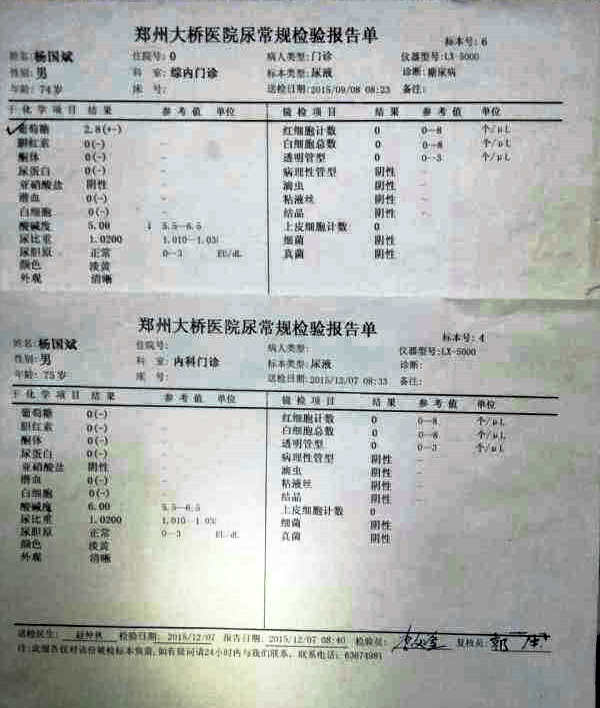 郑州大桥医院尿常规检验报告单
标本号:6
姓名:杨国斌 住院号:0 病人类型:门诊 仪器型号:LX-5000
性别:男 科 室:综内门诊 标本类型:尿液 诊断:糖尿病
年龄:74岁 床 号: 送检日期:2015/09/08 08:23 备注:
干化学项目 结果 参考值 单位 镜检项目 结果 参考值 单位
葡萄糖 2.8(+-) - 红细胞计数 0 0--8 个/μL
胆红素 0(-) - 白细胞总数 0 0--8 个/μL
酮体 0(-) - 透明管型 0 0--3 个/μL
尿蛋白 0(-) - 病理性管型 阴性 -
亚硝酸盐 阴性 - 滴虫 阴性 -
潜血 0(-) - 粘液丝 阴性 -
白细胞 0(-) - 结晶 阴性 -
酸碱度 5.00 ↓ 5.5--6.5 上皮细胞计数 0
尿比重 1.0200 1.010--1.03 细菌 阴性
尿胆原 正常 0--3 EU/dL 真菌 阴性
颜色 淡黄
外观 清晰
郑州大桥医院尿常规检验报告单
标本号:4
姓名:杨国斌 住院号: 病人类型: 仪器型号:LX-5000
性别:男 科 室:内科门诊 标本类型:尿液 诊断:
年龄:75岁 床 号: 送检日期:2015/12/07 08:33 备注:
干化学项目 结果 参考值 单位 镜检项目 结果 参考值 单位
葡萄糖 0(-) - 红细胞计数 0 0--8 个/μL
胆红素 0(-) - 白细胞总数 0 0--8 个/μL
酮体 0(-) - 透明管型 0 0--3 个/μL
尿蛋白 0(-) - 病理性管型 阴性 -
亚硝酸盐 阴性 - 滴虫 阴性 -
潜血 0(-) - 粘液丝 阴性 -
白细胞 0(-) - 结晶 阴性 -
酸碱度 6.00 5.5--6.5 上皮细胞计数 0
尿比重 1.0200 1.010--1.03 细菌 阴性
尿胆原 正常 0--3 EU/dL 真菌 阴性
颜色 淡黄
外观 清晰
送检医生: 检验日期: 2015/12/07 报告日期: 2015/12/07 08:40 检验员: 复核员: 郭
注:此报告仅对该份被检标本负责,如有疑问请24小时内与我们联系, 联系电话: 63674981